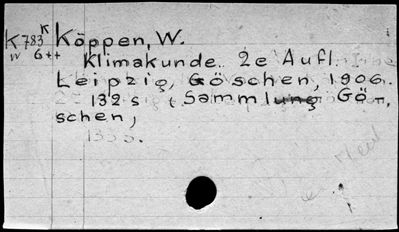 K783K Köppen, W.
w 6++ Klimakunde. 2e Aufl.
Leipzig, Göschen, 1906.
132 s (Sammlung Gö-
schen,